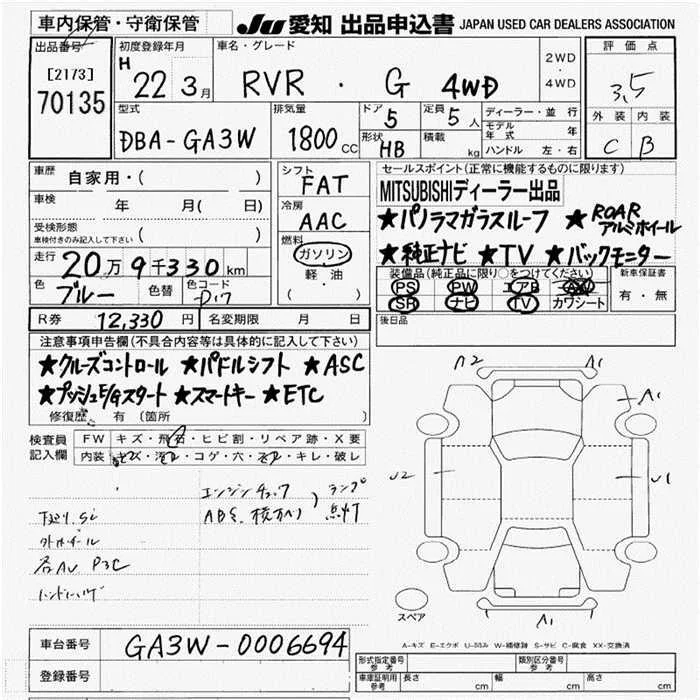 車内保管・守衛保管
JU 愛知 出品申込書 JAPAN USED CAR DEALERS ASSOCIATION
出品番号 初度登録年月 車名・グレード 評価点
[2173] 70135
H 22 3月
RVR ・ G 4WD
2WD ・ 4WD
3.5
外装 内装
C B
型式 排気量 ドア 定員 ディーラー・並行
DBA-GA3W 1800cc 5 5人
モデル年式 年
形状 HB 積載 kg ハンドル 左・右
車歴 自家用・( )
シフト FAT
セールスポイント(正常に機能するものに限ります)
MITSUBISHIディーラー出品
車検 年 月( 日)
冷房 AAC
★パノラマガラスルーフ ★ROARアルミホイール
受検形態
車検付きのみ記入して下さい ( )
燃料 ガソリン
軽油
( ・ )
★純正ナビ ★TV ★バックモニター
走行 20万9千330km
装備品(純正品に限り○をつけてください) 新車保証書
PS PW エアB AW
SR ナビ TV カワシート
有・無
色 ブルー 色替 色コード D17
R券 12,330円 名変期限 月 日
後日品
注意事項申告欄(不具合内容等は具体的に記入して下さい)
★クルーズコントロール ★パドルシフト ★ASC
★プッシュE/Gスタート ★スマートキー ★ETC
修復歴 有 (箇所 )
検査員記入欄
FW キズ・飛石・ヒビ割・リペア跡・X要
内装 キズ・汚れ・コゲ・穴・スレ・キレ・破レ
エンジンチェック
ランプ
ABS
点灯
A2 A1
A1
U2 U1
A1
スペア
A-キズ E-エクボ U-凹み W-補修跡 S-サビ C-腐食 XX-交換済
車台番号 GA3W-0006694
登録番号
形式指定番号 参考 類別区分番号 参考
車庫証明用 参考 長さ cm 幅 cm 高さ cm